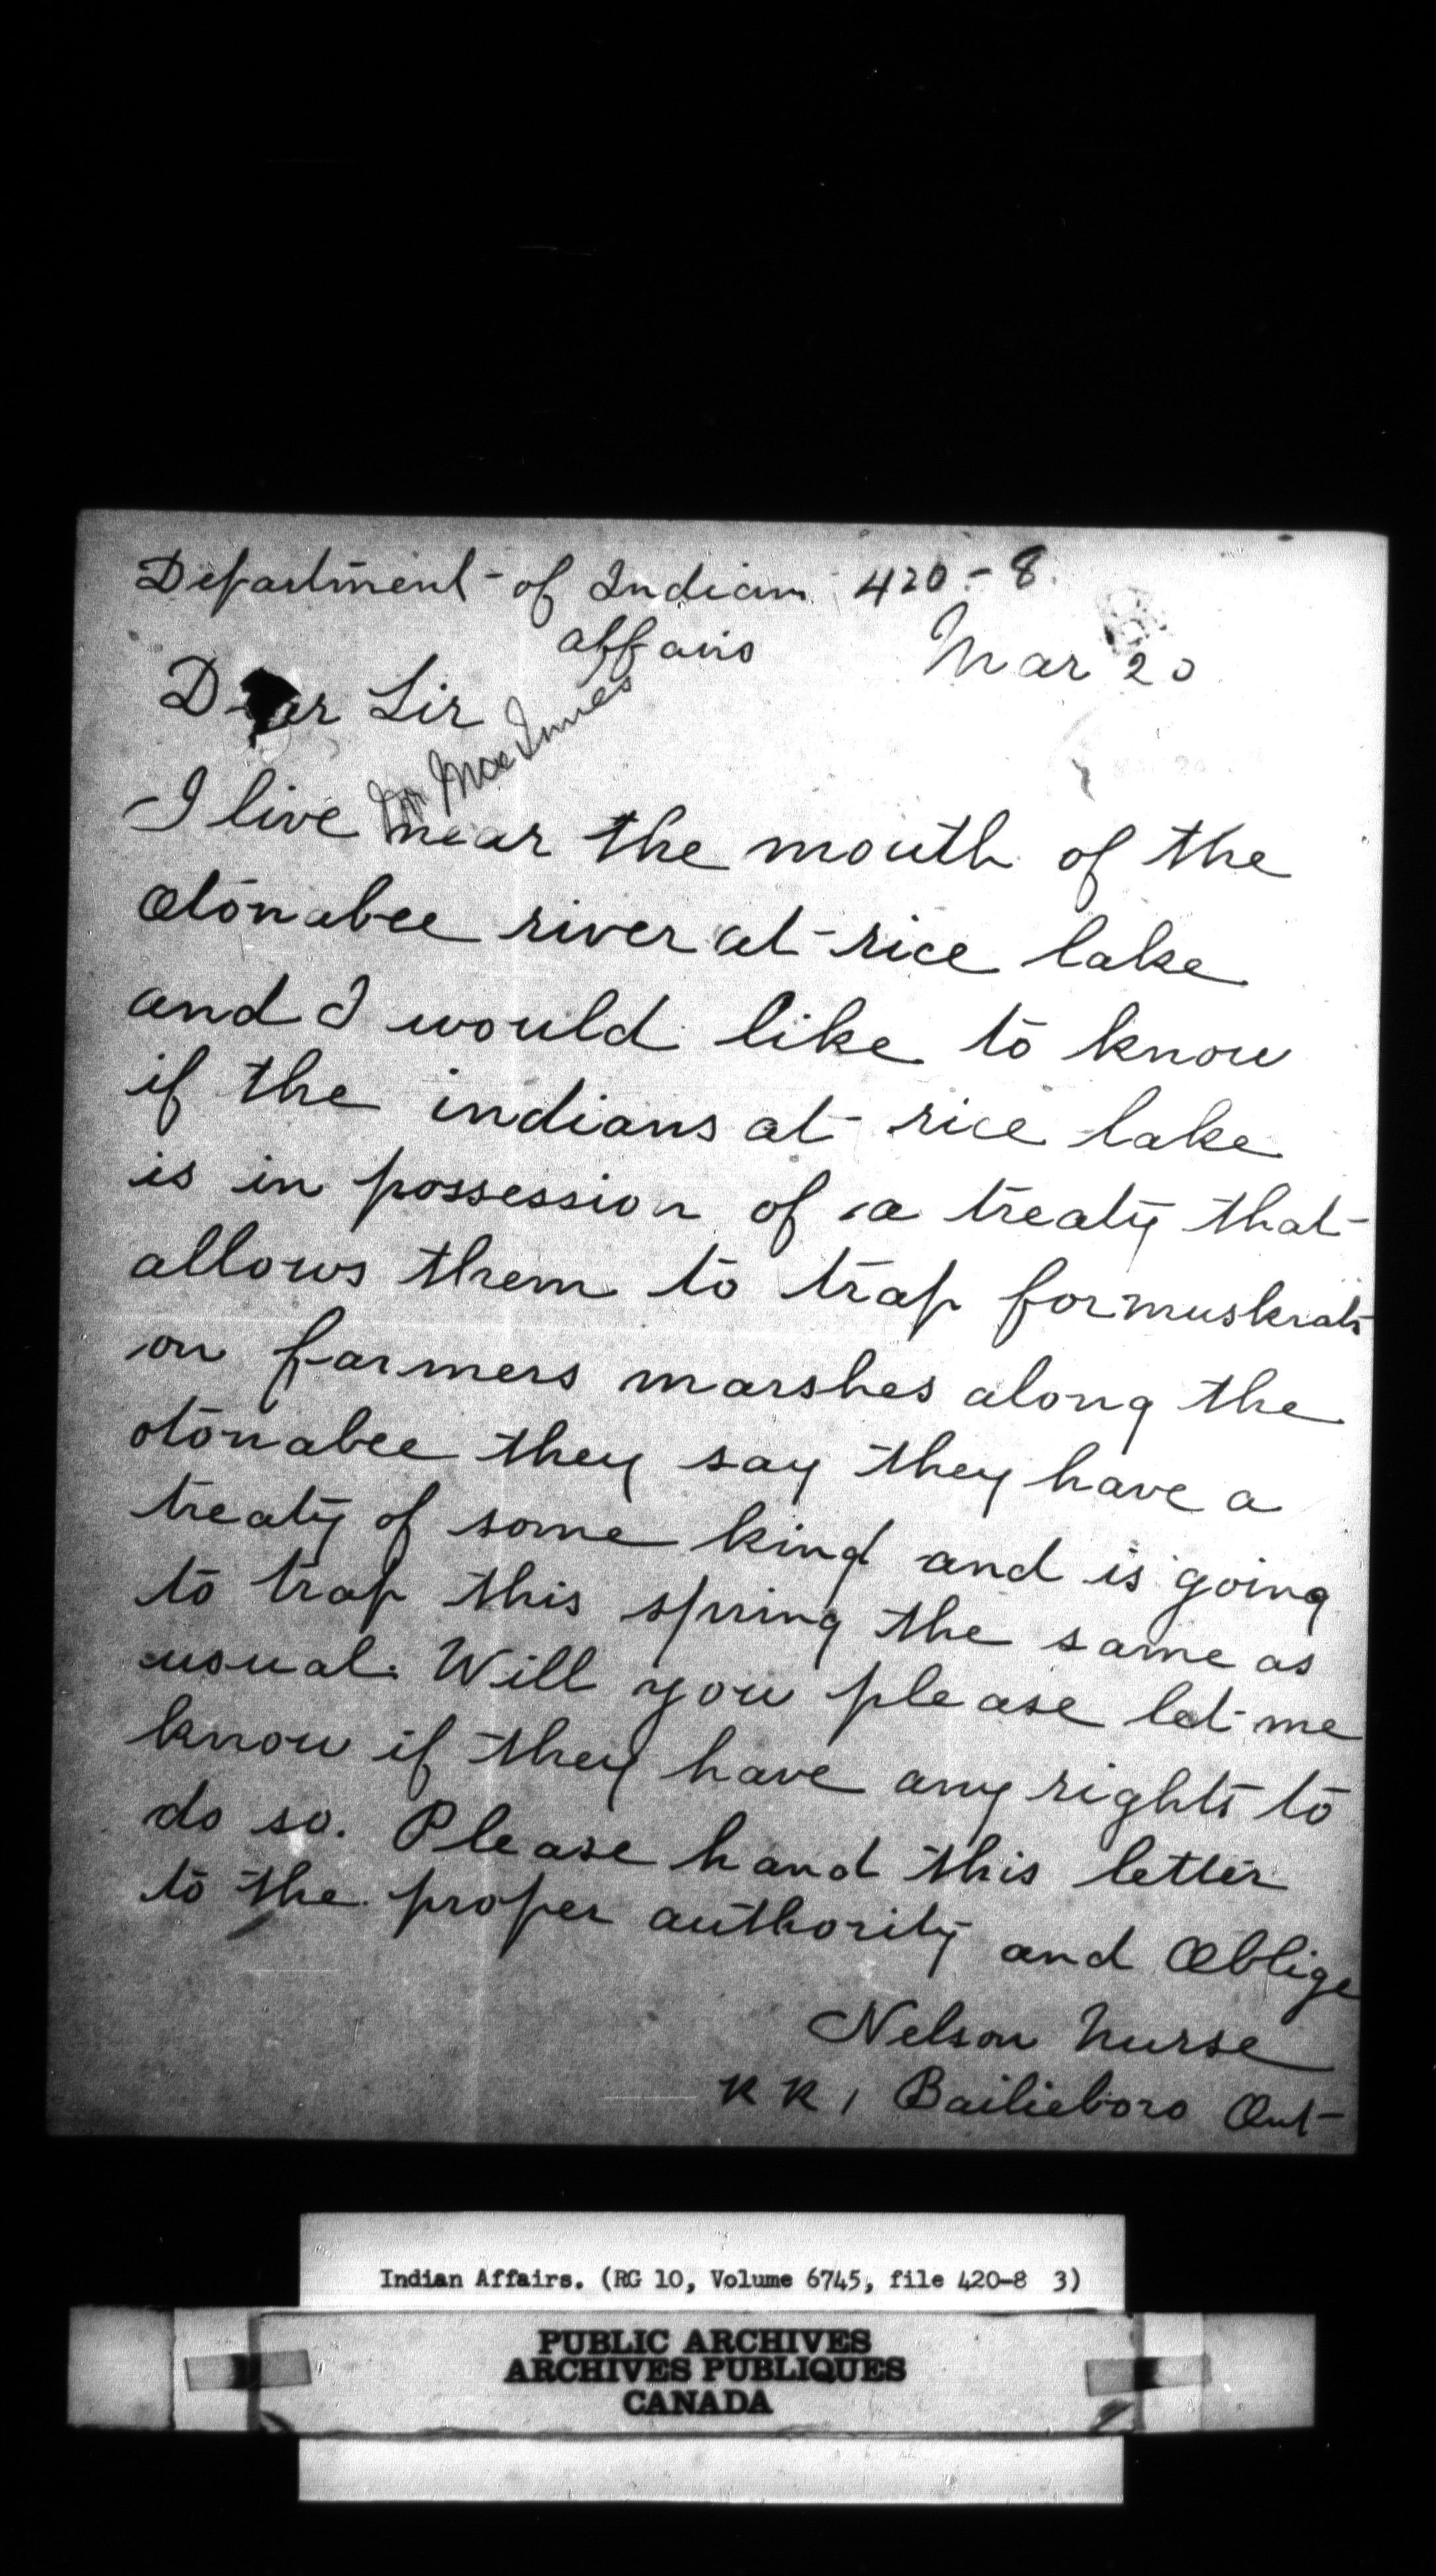 Department of Indian 420-8
affairs
Mar 20
Dear Sir
Mr MacInnes
I live near the mouth of the
Otonabee river at rice lake
and I would like to know
if the indians at rice lake
is in possession of a treaty that
allows them to trap for muskrats
on farmers marshes along the
otonabee they say they have a
treaty of some kind and is going
to trap this spring the same as
usual. Will you please let me
know if they have any rights to
do so. Please hand this letter
to the proper authority and Oblige
Nelson Nurse
RR 1 Bailieboro Ont
Indian Affairs. (RG 10, Volume 6745, file 420-8 3)
PUBLIC ARCHIVES
ARCHIVES PUBLIQUES
CANADA